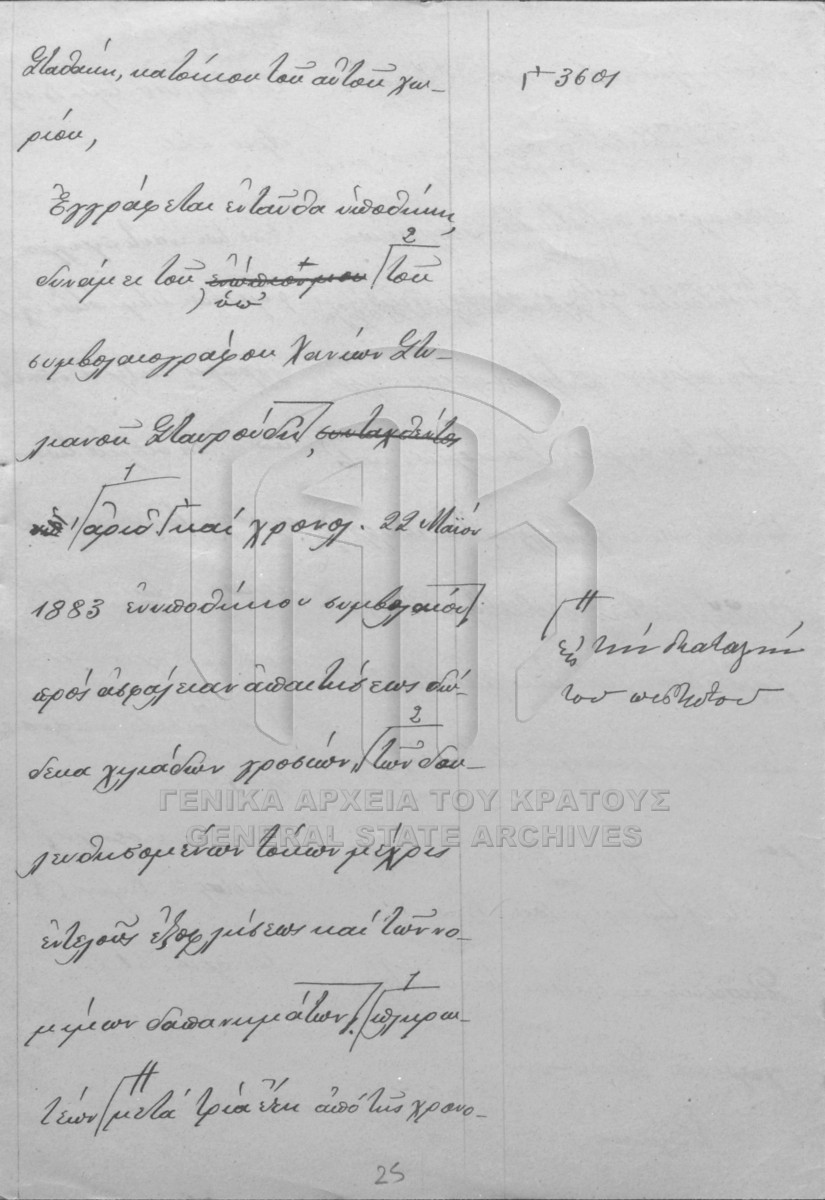 Σταθάκη, κατοίκου τοῦ αὐτοῦ χω-
ρίου,
3601
Ἐγγράφεται ἐνταῦθα ὑποθήκη,
2
δυνάμει τοῦ τοῦ
ὑπ᾽
συμβολαιογράφου Χανίων Στυ-
λιανοῦ Σταυρούδη, συνταχθέντος
1
ἀριθ καὶ χρονολ. 22 Μαΐου
1883 ἐνυποθήκου συμβολαίου
πρὸς ἀσφάλειαν ἀπαιτήσεως δώ-
2
δεκα χιλιάδων γροσίων, τῶν δου-
λευθησομένων τόκων μέχρις
ἐντελοῦς ἐξοφλήσεως καὶ τῶν νο-
1
μίμων δαπανημάτων, πληρω-
τέων μετὰ τρία ἔτη ἀπὸ τῆς χρονο-
εἰς τὴν διαταγὴν
του πιστωτοῦ
25
ΓΕΝΙΚΑ ΑΡΧΕΙΑ ΤΟΥ ΚΡΑΤΟΥΣ
GENERAL STATE ARCHIVES